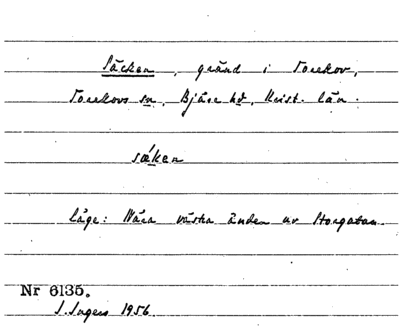 Säcken, gränd i Torekov,
Torekovs sn, Bjäre hd, Krist. län.
sǽken
Läge: Nära västra änden av Storgatan.
Nr 6135.
S. Ingers 1956.